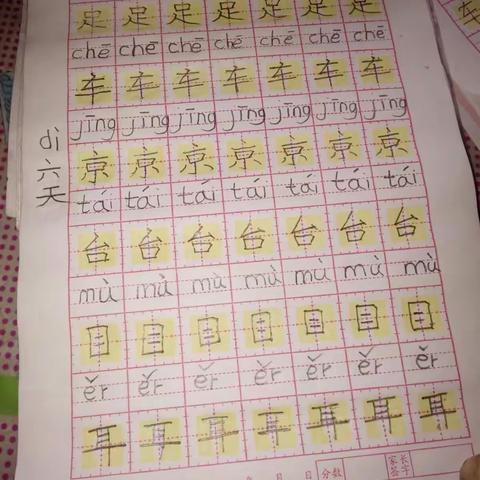 足 足 足 足 足 足 足
chē chē chē chē chē chē chē
车 车 车 车 车 车 车
jīng jīng jīng jīng jīng jīng jīng
京 京 京 京 京 京 京
dì
六
天
tái tái tái tái tái tái tái
台 台 台 台 台 台 台
mù mù mù mù mù mù mù
目 目 目 目 目 目 目
ěr ěr ěr ěr ěr ěr ěr
耳 耳 耳 耳 耳 耳 耳
月 日 分数 家长签字